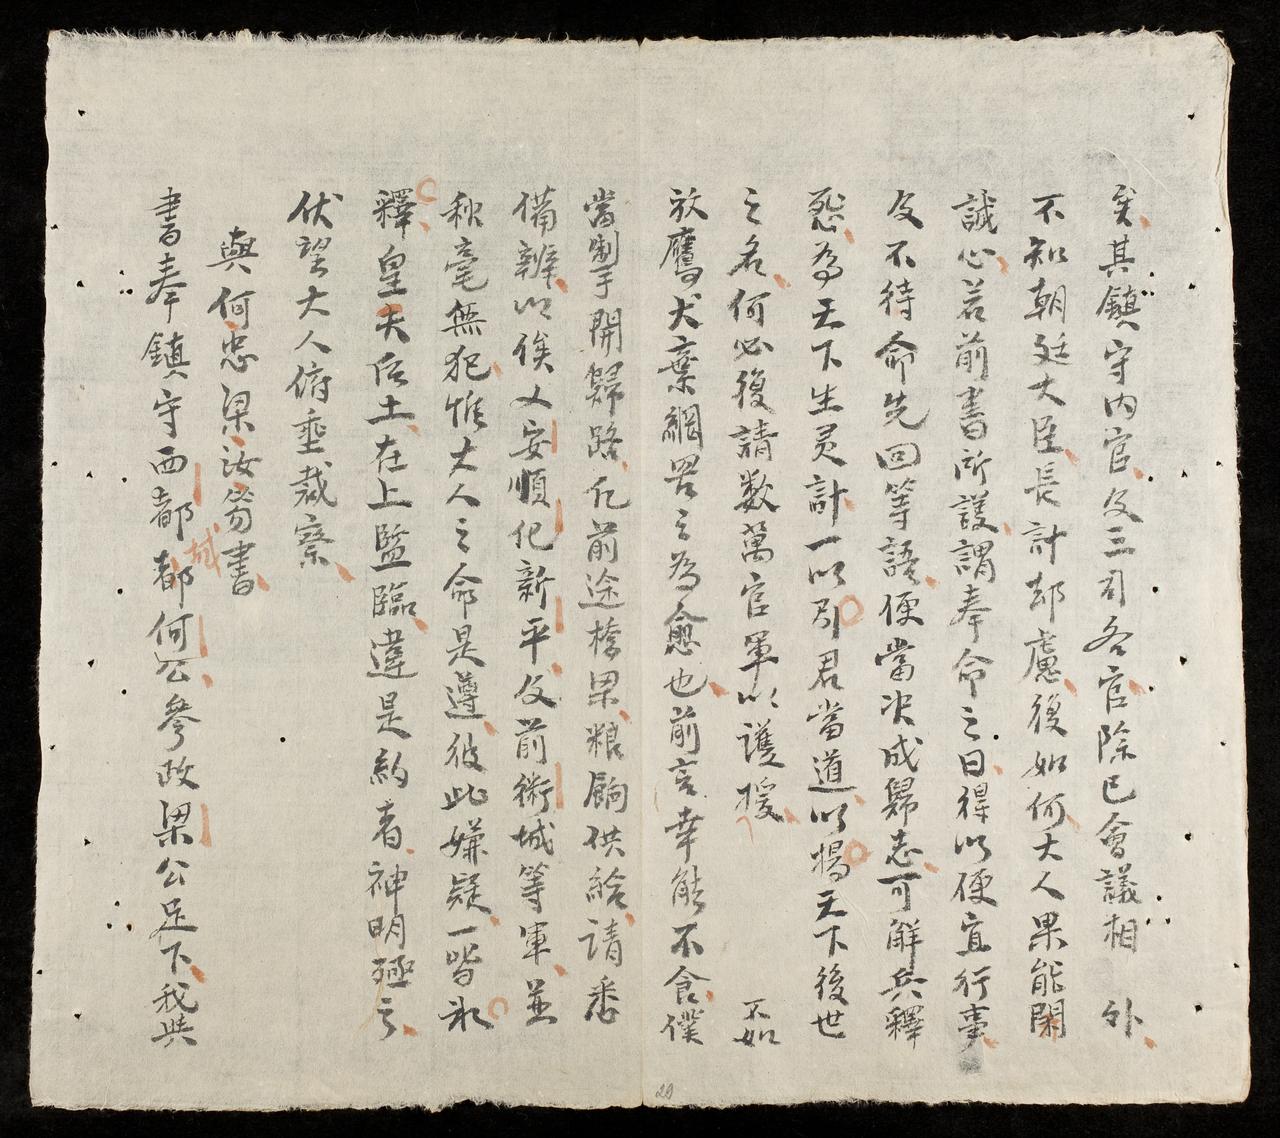 矣其鎮守内官及三司各官除已會議相 外
不知朝廷大臣長計却慮後如何大人果能闲
誠心若前書所護謂奉命之日得以便宜行事
及不待命先回等語便當决成歸志可解兵釋
怨為天下生灵計一以引君當道以揚天下後世
之名何必復請数萬官軍以護援 不如
放鷹犬棄網罟之為愈也前言幸能不食僕
當制手開歸路凡前途橋梁粮餉供給請悉
備辦以俟乂安順化新平及前衛城等軍並
秋毫無犯惟大人之命是遵彼此嫌疑一皆氷
釋皇天后土在上監臨違是約者神明殛之
伏望大人俯垂裁察
與何忠梁汝笏書
書奉鎮守西都都何公參政梁公足下我與
城
20